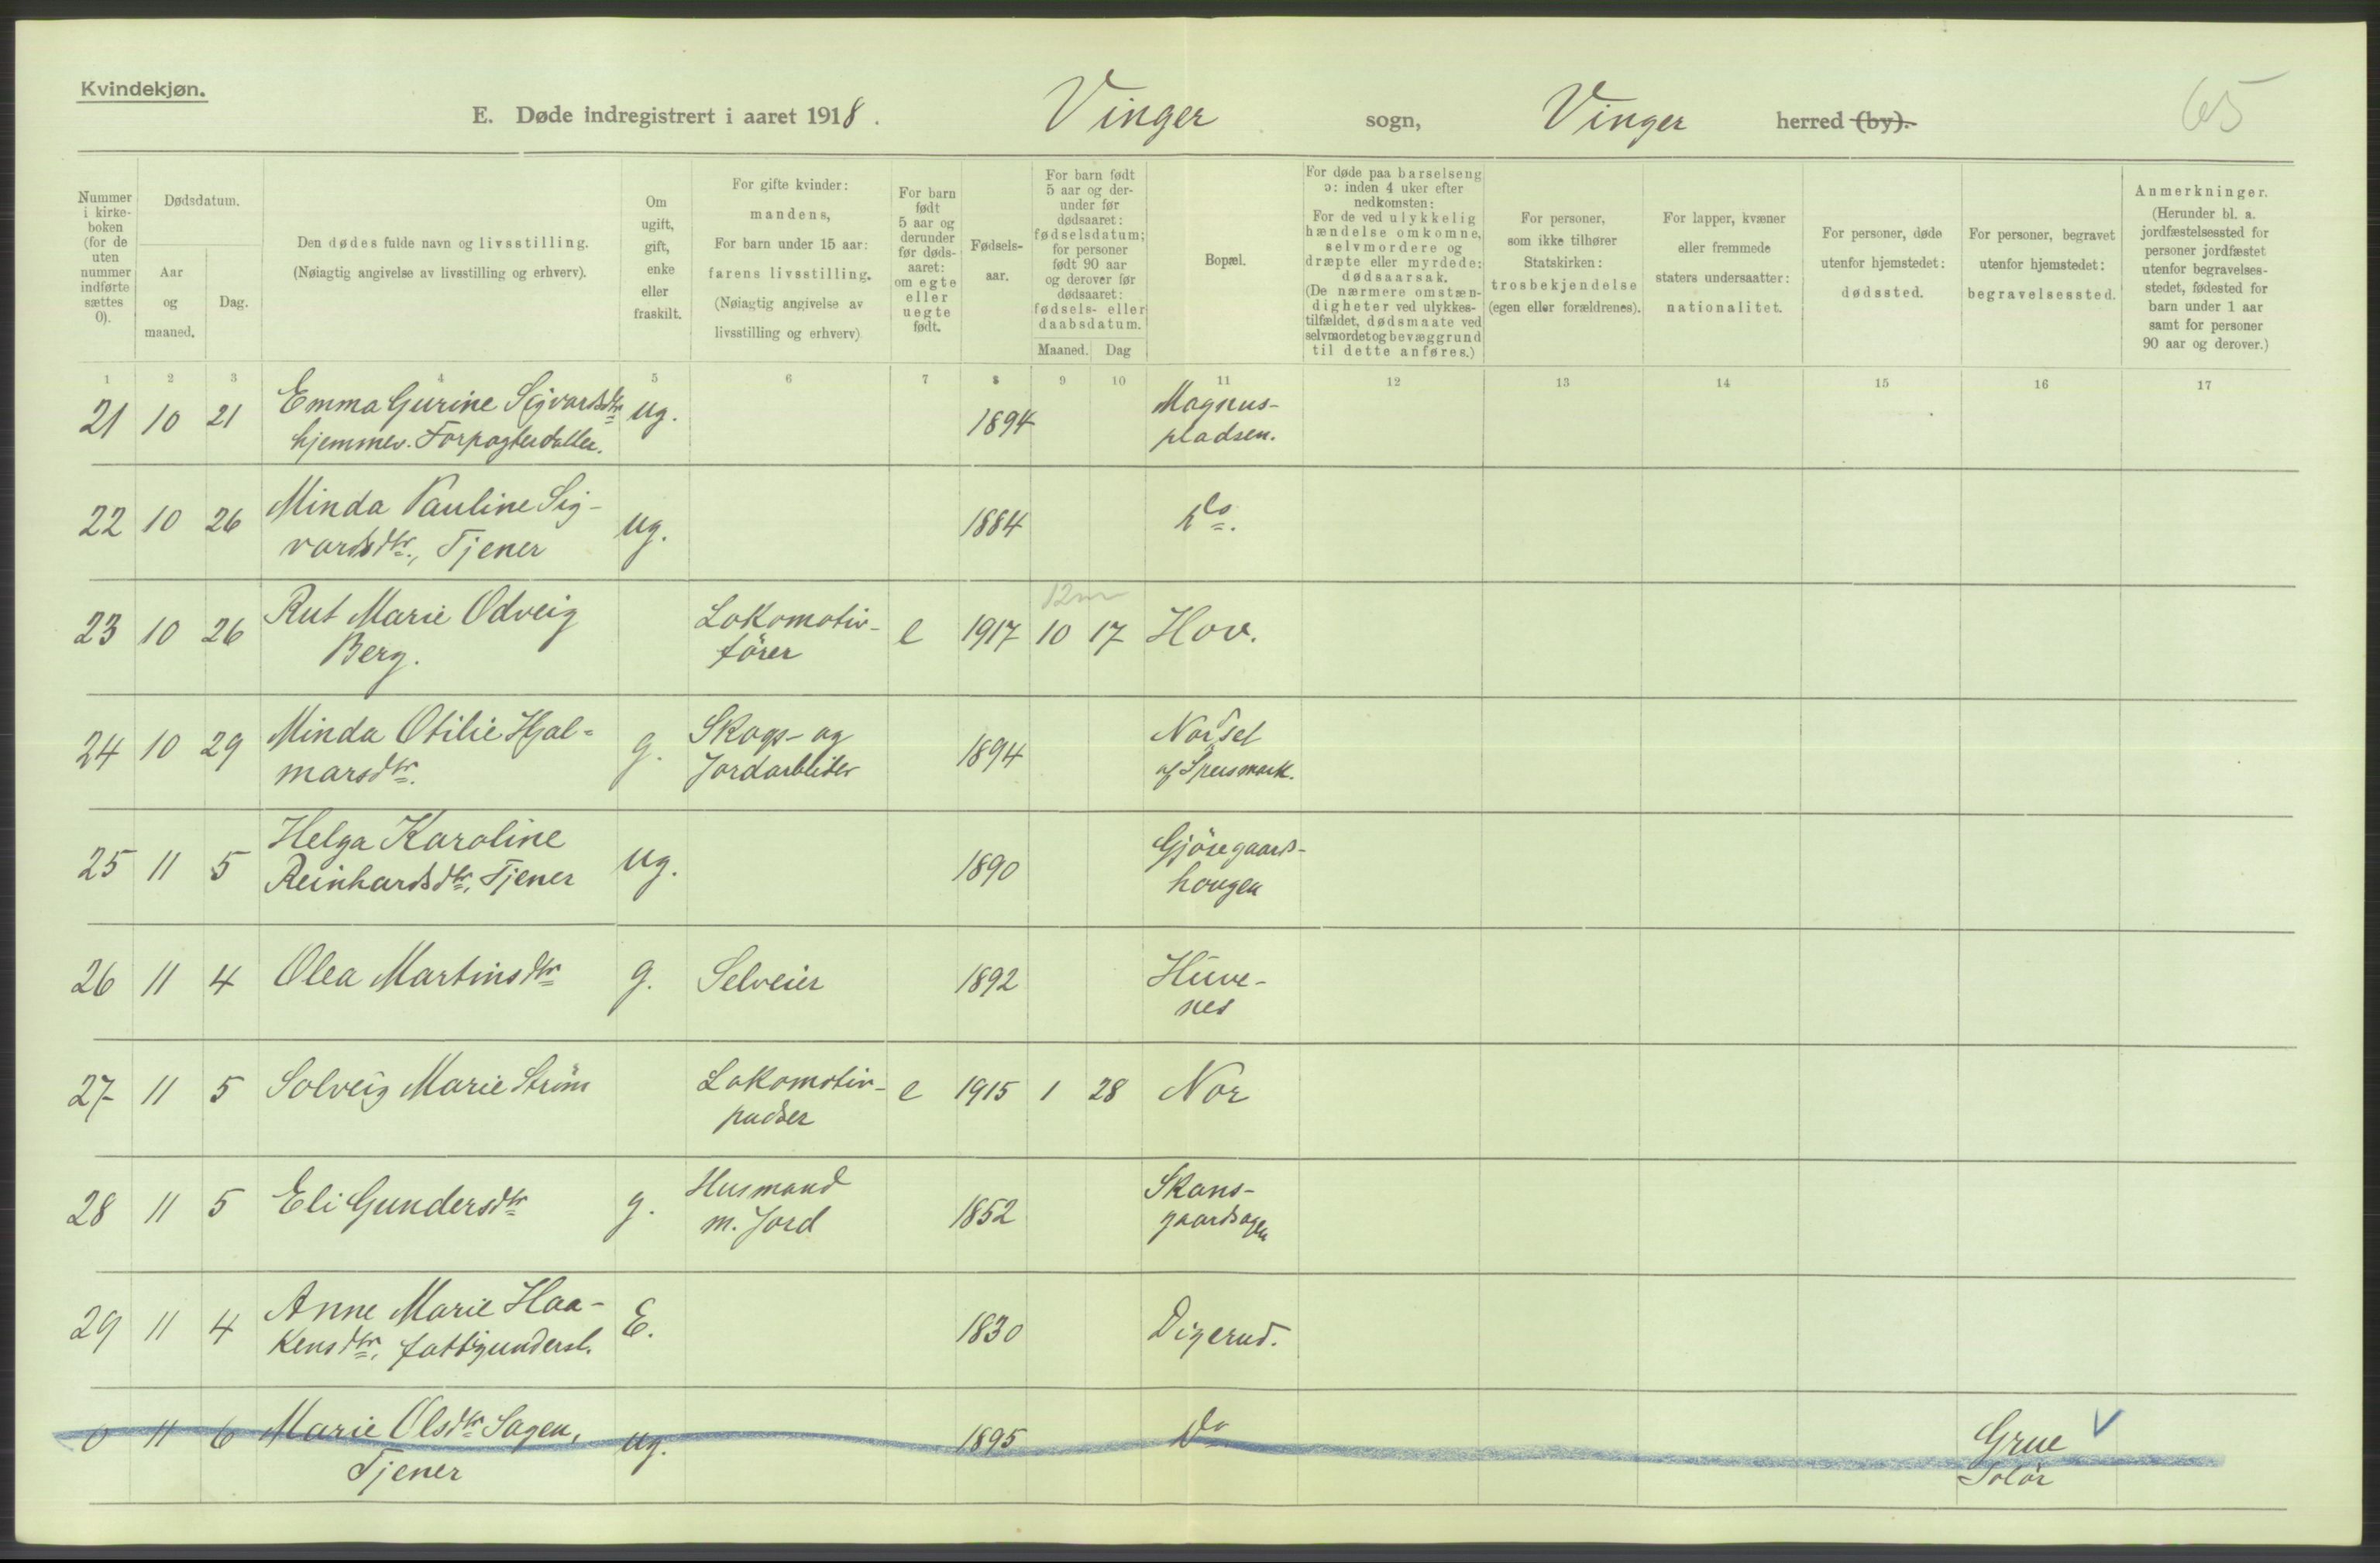 Kvindekjøn.
E. Døde indregistrert i aaret 1918. Vinger sogn, Vinger herred (by). 65
Nummer i kirke-boken (for de uten nummer indførte sættes 0).
Dødsdatum.
Aar og maaned.
Dag.
Den dødes fulde navn og livsstilling.
(Nøiagtig angivelse av livsstilling og erhverv).
Om ugift, gift, enke eller fraskilt.
For gifte kvinder: mandens,
For barn under 15 aar: farens livsstilling.
(Nøiagtig angivelse av livsstilling og erhverv)
For barn født 5 aar og derunder før døds-aaret: om egte eller uegte født.
Fødsels-aar.
For barn født 5 aar og der-under før dødsaaret: fødselsdatum; for personer født 90 aar og derover før dødsaaret: fødsels- eller daabsdatum.
Maaned. Dag
Bopæl.
For døde paa barselseng ɔ: inden 4 uker efter nedkomsten:
For de ved ulykkelig hændelse omkomne, selvmordere og dræpte eller myrdede: dødsaarsak.
(De nærmere omstæn-digheter ved ulykkes-tilfældet, dødsmaate ved selvmordet og bevæggrund til dette anføres.)
For personer, som ikke tilhører Statskirken: trosbekjendelse (egen eller forældrenes).
For lapper, kvæner eller fremmede staters undersaatter: nationalitet.
For personer, døde utenfor hjemstedet: dødssted.
For personer, begravet utenfor hjemstedet: begravelsessted.
Anmerkninger.
(Herunder bl. a. jordfæstelsessted for personer jordfæstet utenfor begravelses-stedet, fødested for barn under 1 aar samt for personer 90 aar og derover.)
1 2 3 4 5 6 7 8 9 10 11 12 13 14 15 16 17
21 10 21 Emma Gurine Sigvardsdtr ug. 1894 Magnus-
hjemmev. Forpagterdatter. pladsen.
22 10 26 Minda Pauline Sig- ug. 1884 do.
vardsdtr., Tjener
12m
23 10 26 Rut Marie Odveig Lokomotiv- e 1917 10 17 Hov.
Berg. fører
24 10 29 Minda Otilie Hjal- g. Skogs- og 1894
marsdtr. Jordarbeider
25 11 5 Helga Karoline ug. 1890 Gjøsegaards-
Reinhardsdtr, Tjener hougen
26 11 4 Olea Martinsdtr g. Selveier 1892 Huve-
nes
27 11 5 Solveig Marie Strøm Lokomotiv- e 1915 1 28 Nor
pudser
28 11 5 Eli Gundersdtr g. Husmand 1852 Skans-
m. Jord
29 11 4 Anne Marie Haa- E. 1830 Digerud.
kensdtr, fattigundersl.
0 11 6 Marie Olsdtr Sagen, ug. 1895 Do Grue
Tjener Solør